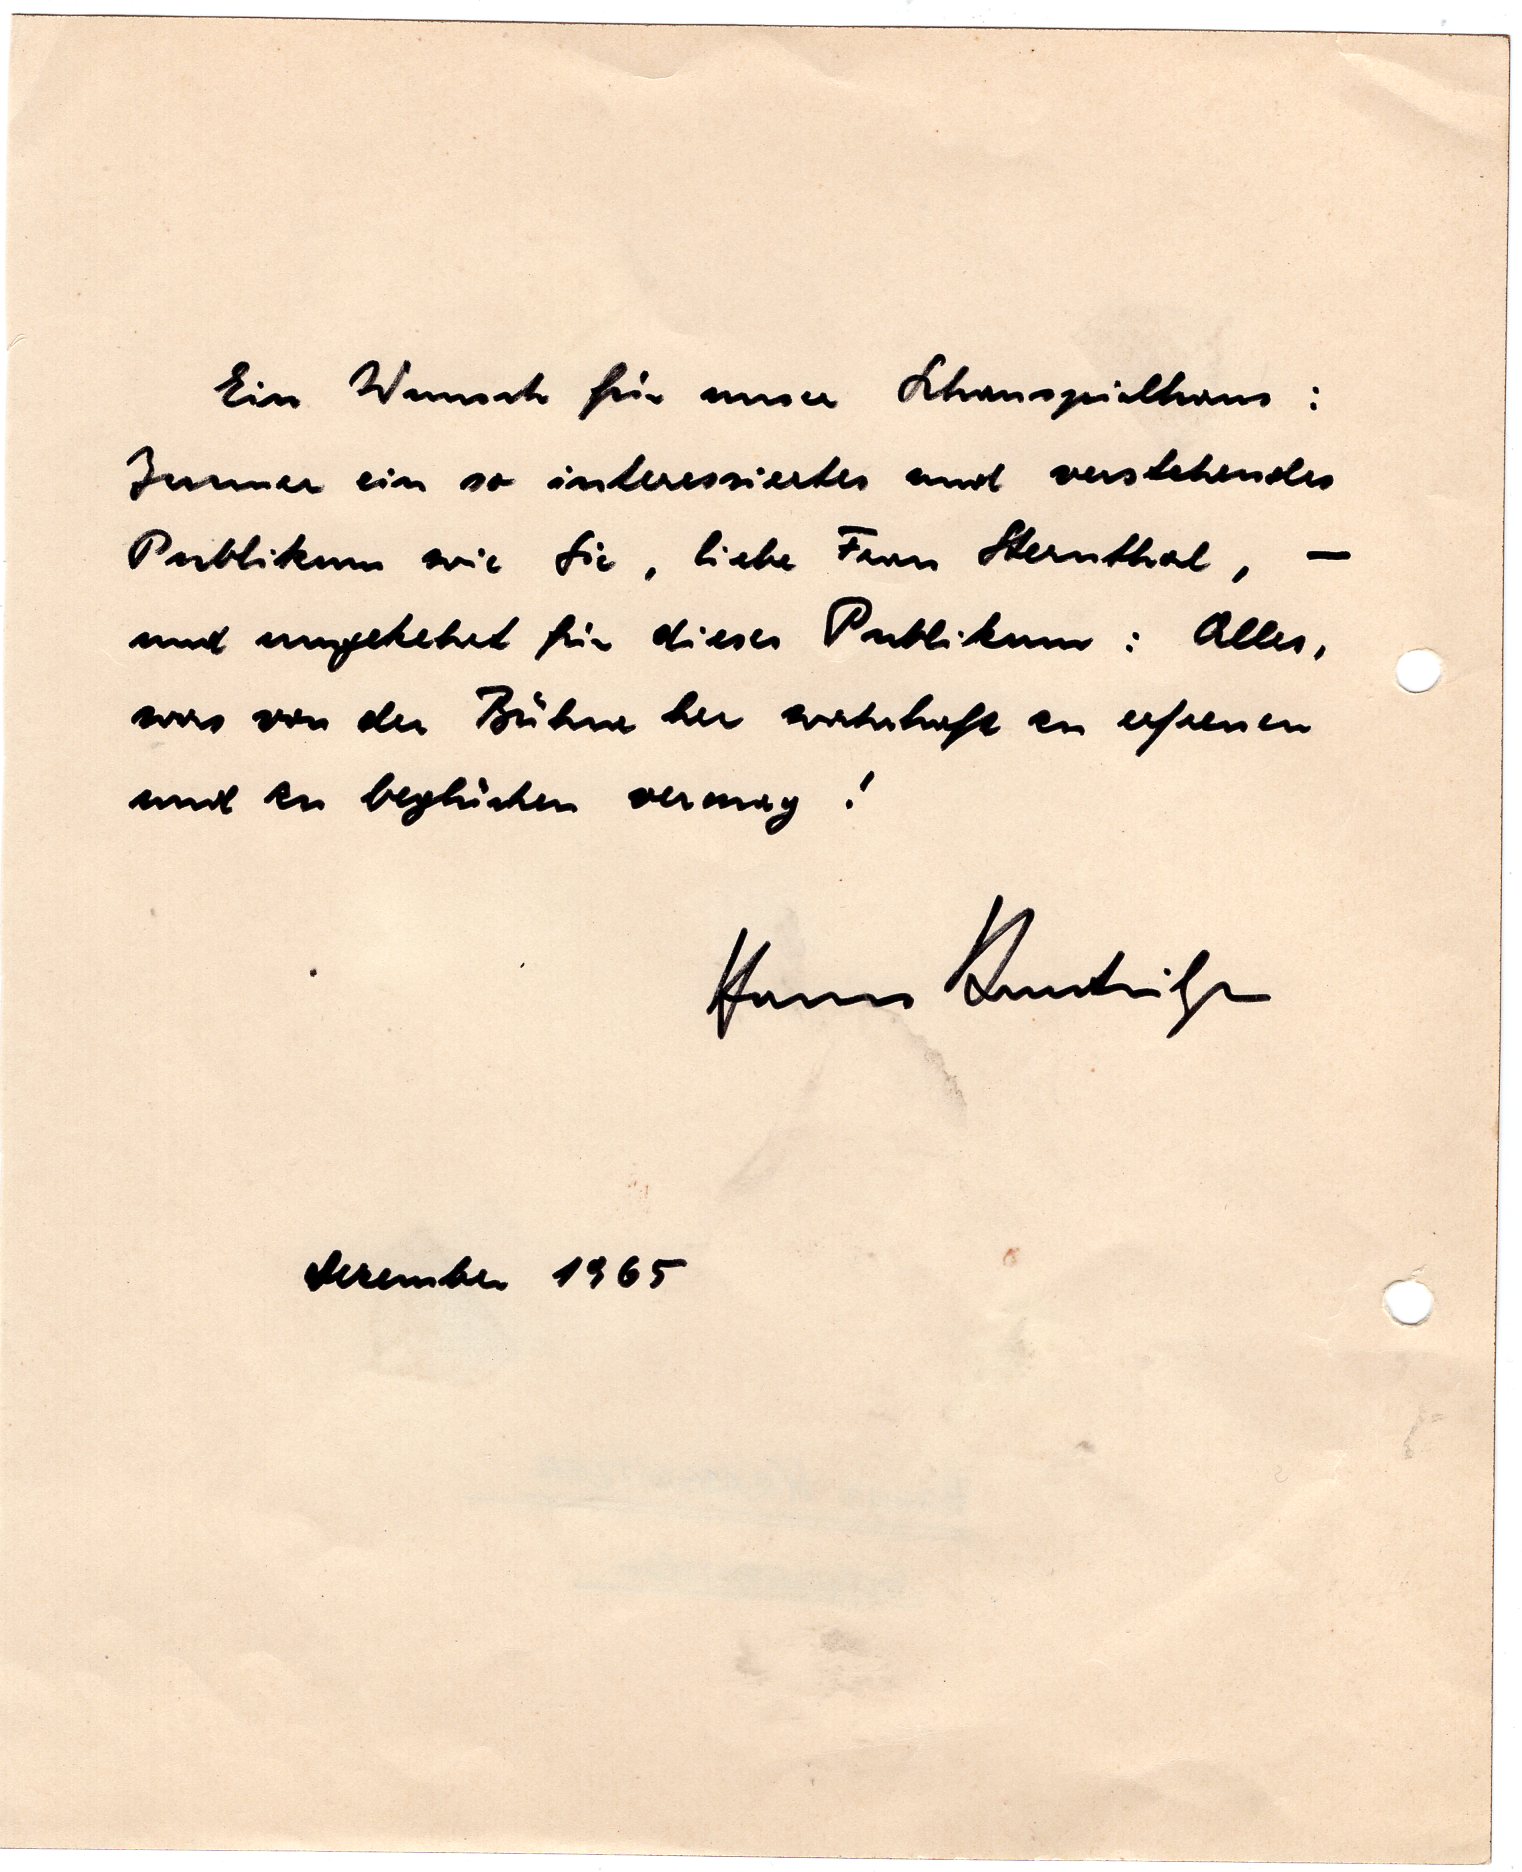 Ein Wunsch für unser Schauspielhaus :
Immer ein so interessiertes und verstehendes
Publikum wie Sie, liebe Frau Sternthal, —
und umgekehrt für dieses Publikum : Alles,
was von der Bühne her wahrhaft zu erfreuen
und zu beglücken vermag !
Hanns
Dezember 1965